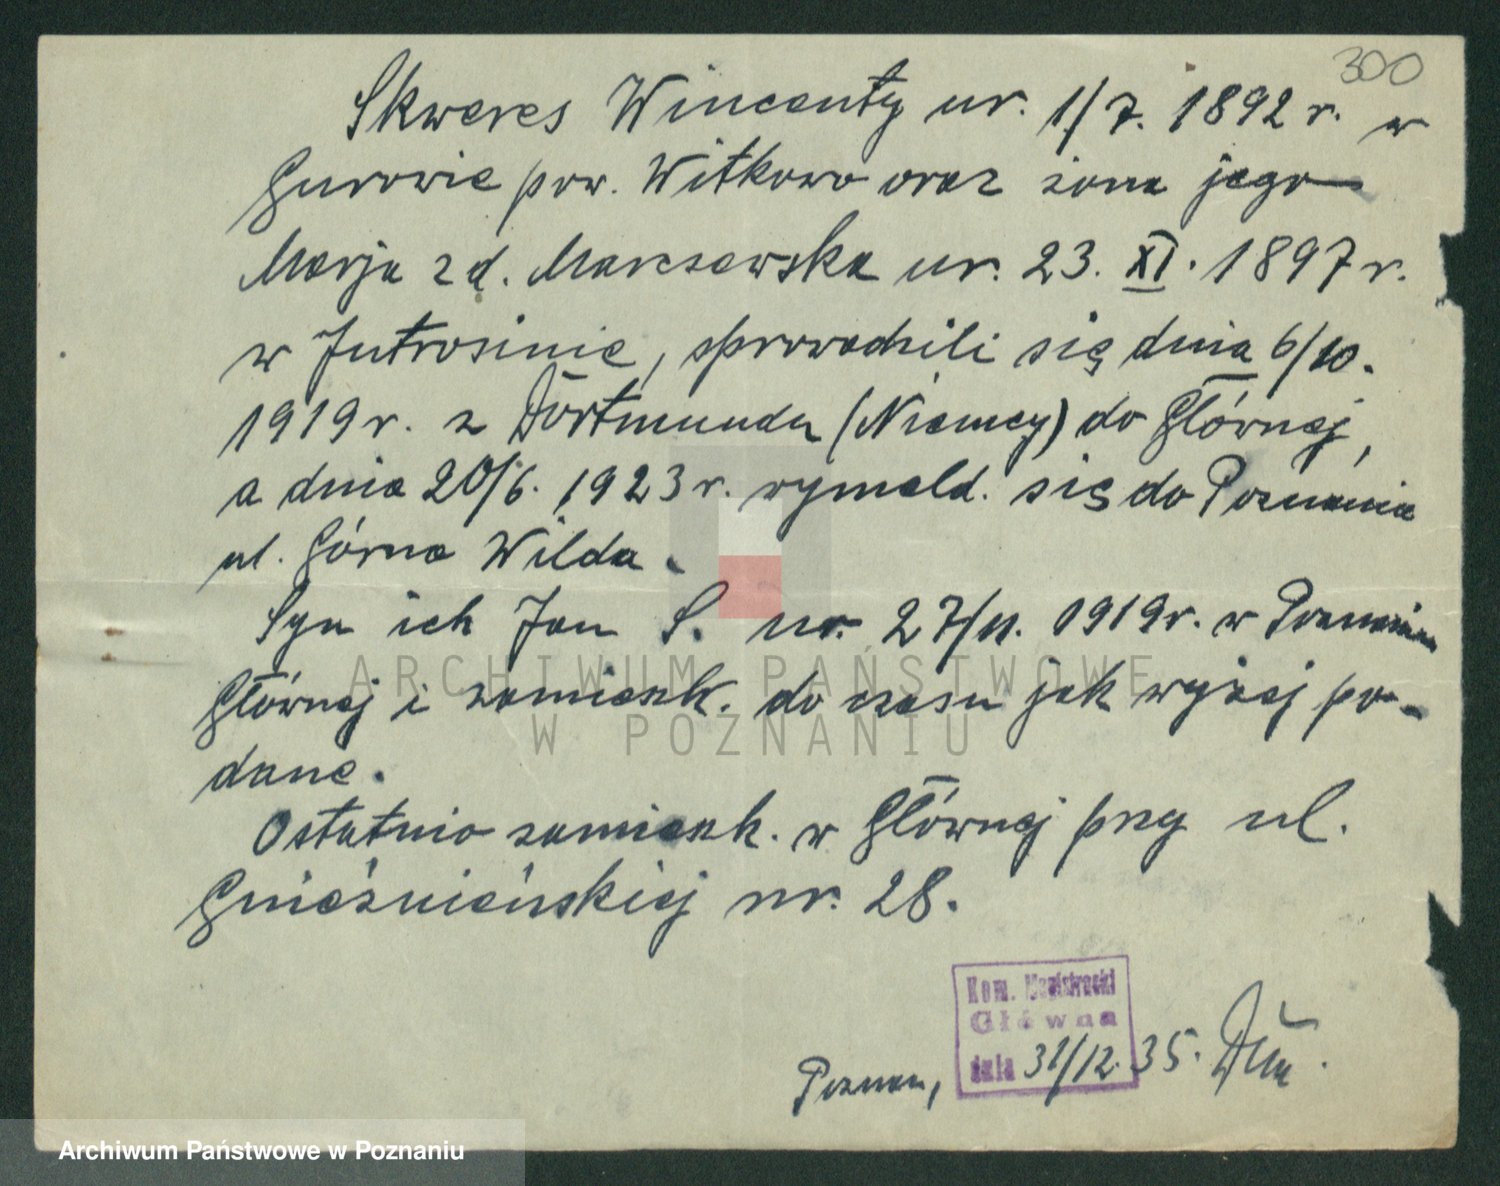 300
Skweres Wincenty ur. 1/7. 1892 r. w
Gurowie pow. Witkowo oraz żona jego
Marja zd. Marczewska ur. 23. XI. 1897 r.
w Jutrosinie, sprowadzili się dnia 6/10.
1919 r. z Dortmundu (Niemcy) do Głównej,
a dnia 20/6. 1923 r. wymeld. się do Poznania
ul. Górna Wilda.
Syn ich Jan S. ur. 27/11. 1919 r. w Poznaniu
Głównej i zamieszk. do czasu jak wyżej po-
dane.
Ostatnio zamieszk. w Głównej przy ul.
Gnieźnieńskiej nr. 28.
Kom. Magistracki
Główna
dnia 31/12. 35.
Poznań,
ARCHIWUM PAŃSTWOWE
W POZNANIU
Archiwum Państwowe w Poznaniu